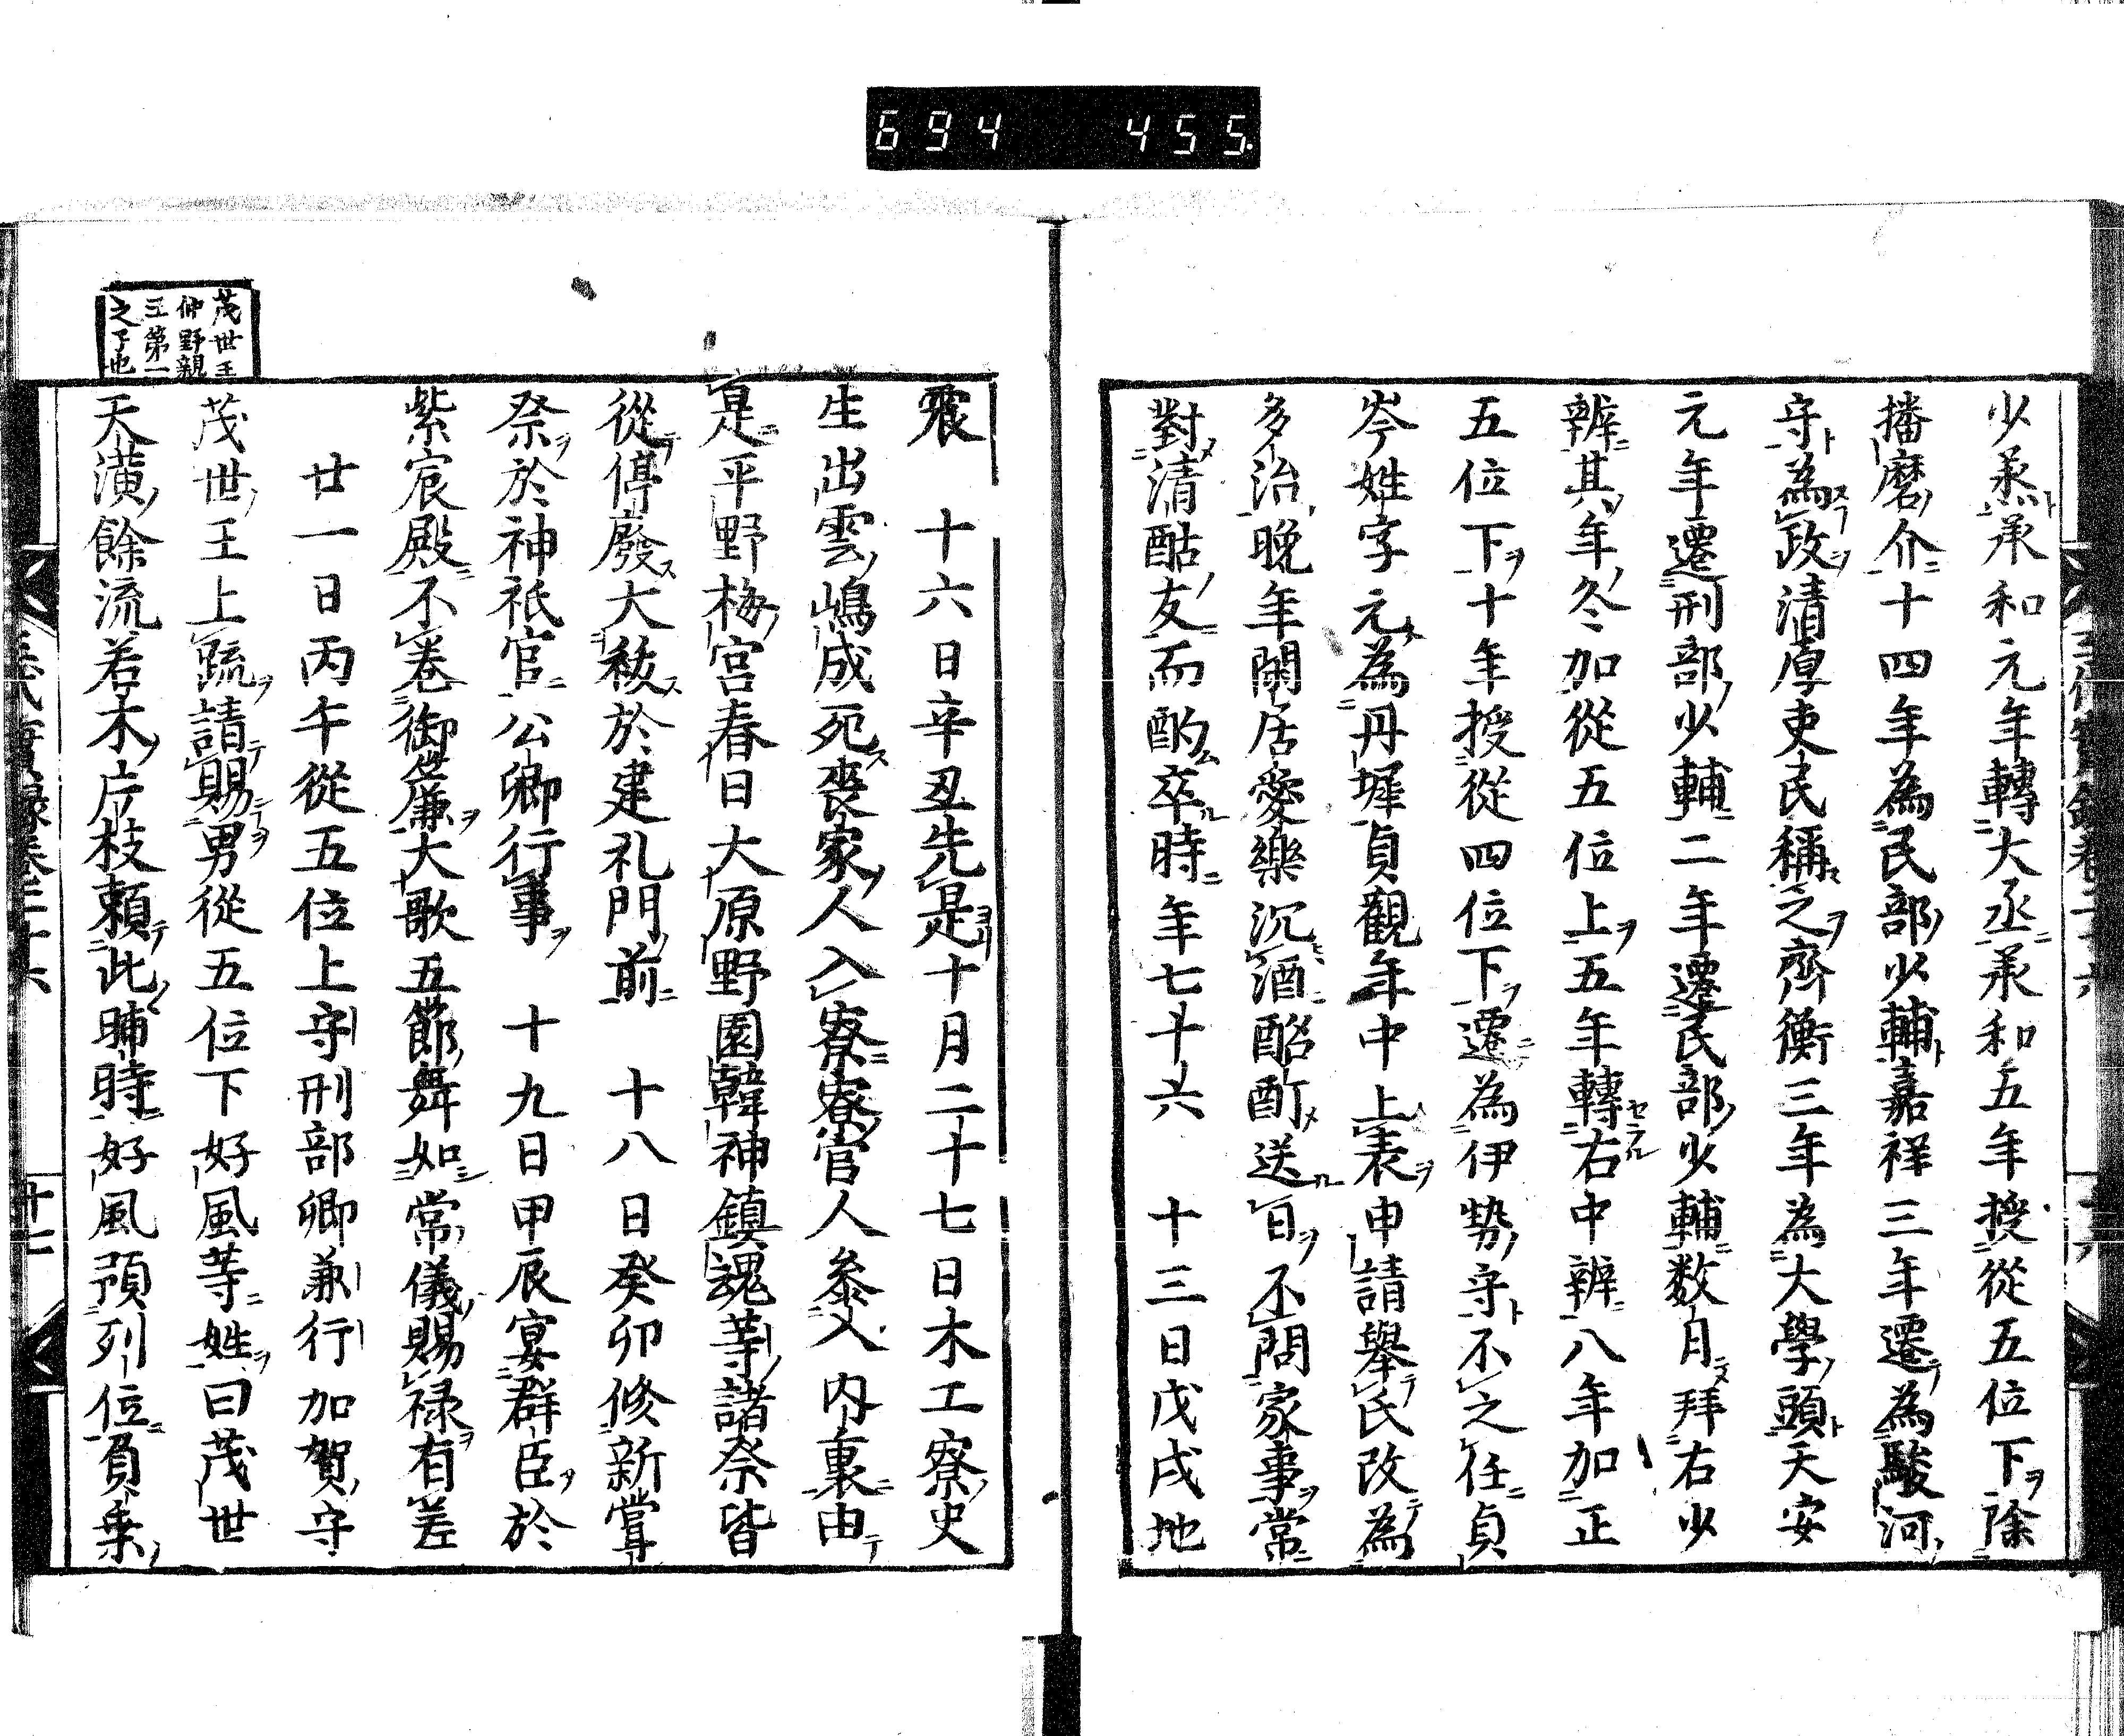 694 455.
少烝承和元年轉大丞承和五年授從五位下除
播磨介十四年為民部少輔嘉祥三年遷為駿河
守為政清厚吏民稱之齊衡三年為大學頭天安
元年遷刑部少輔二年遷民部少輔数月拜右少
辨其年冬加從五位上五年轉右中辨八年加正
五位下十年授從四位下遷為伊勢守不之任貞
岑姓字元為丹墀貞觀年中上表申請舉氏改為
多治晚年閑居愛樂沉酒酩酊送日不問家事常
對清酤友而酌卒時年七十六 十三日戊戌地
震 十六日辛丑先是十月二十七日木工寮史
生出雲嶋成死喪家人入寮寮官人參入内裏由
是平野梅宮春日大原野園韓神鎮魂等諸祭皆
從停廢大祓於建礼門前 十八日癸卯修新嘗
祭於神祇官公卿行事 十九日甲辰宴群臣於
紫宸殿不巻御簾大歌五節舞如常儀賜禄有差
廿一日丙午從五位上守刑部卿兼行加賀守
茂世王上疏請賜男從五位下好風等姓曰茂世
天潢餘流若木片枝頼此時好風預列位負乗
茂世王
仲野親
王第一
之子也
三代實録巻三十六
十二